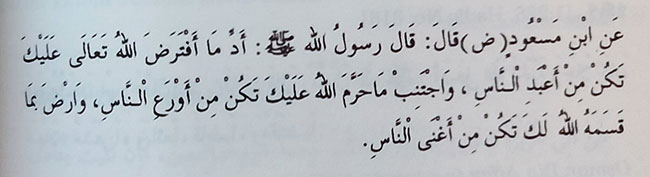 عَنِ ابْنِ مَسْعُودٍ(ض)قَالَ: قَالَ رَسُولُ الله ﷺ: أَدِّ مَا أَفْتَرَضَ اللهُ تَعَالَى عَلَيْكَ
تَكُنْ مِنْ أَعْبَدِ الْنَّاسِ، وَاجْتَنِبْ مَاحَرَّمَ اللهُ عَلَيْكَ تَكُنْ مِنْ أَوْرَعِ الْنَّاسِ، وَارْضَ بَمَا
قَسَمَهُ اللهُ لَكَ تَكُنْ مِنْ أَغْنَى الْنَّاسِ.